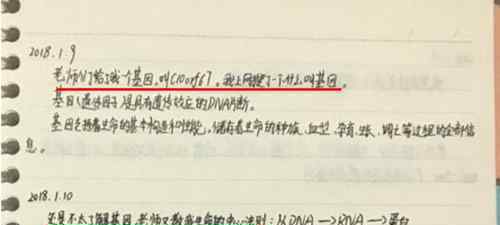 2018.1.9
老师们给了我一个基因,叫C10orf67。我上网搜了一下什么叫基因。
基因(遗传因子)是具有遗传效应的DNA片断。
基因支持着生命的基本构造和性能,储存着生命的种族、血型、孕育、生长、凋亡等过程的全部信
息。
2018.1.10
还是不太了解基因,老师又教我生命的中心法则:从DNA→RNA→蛋白